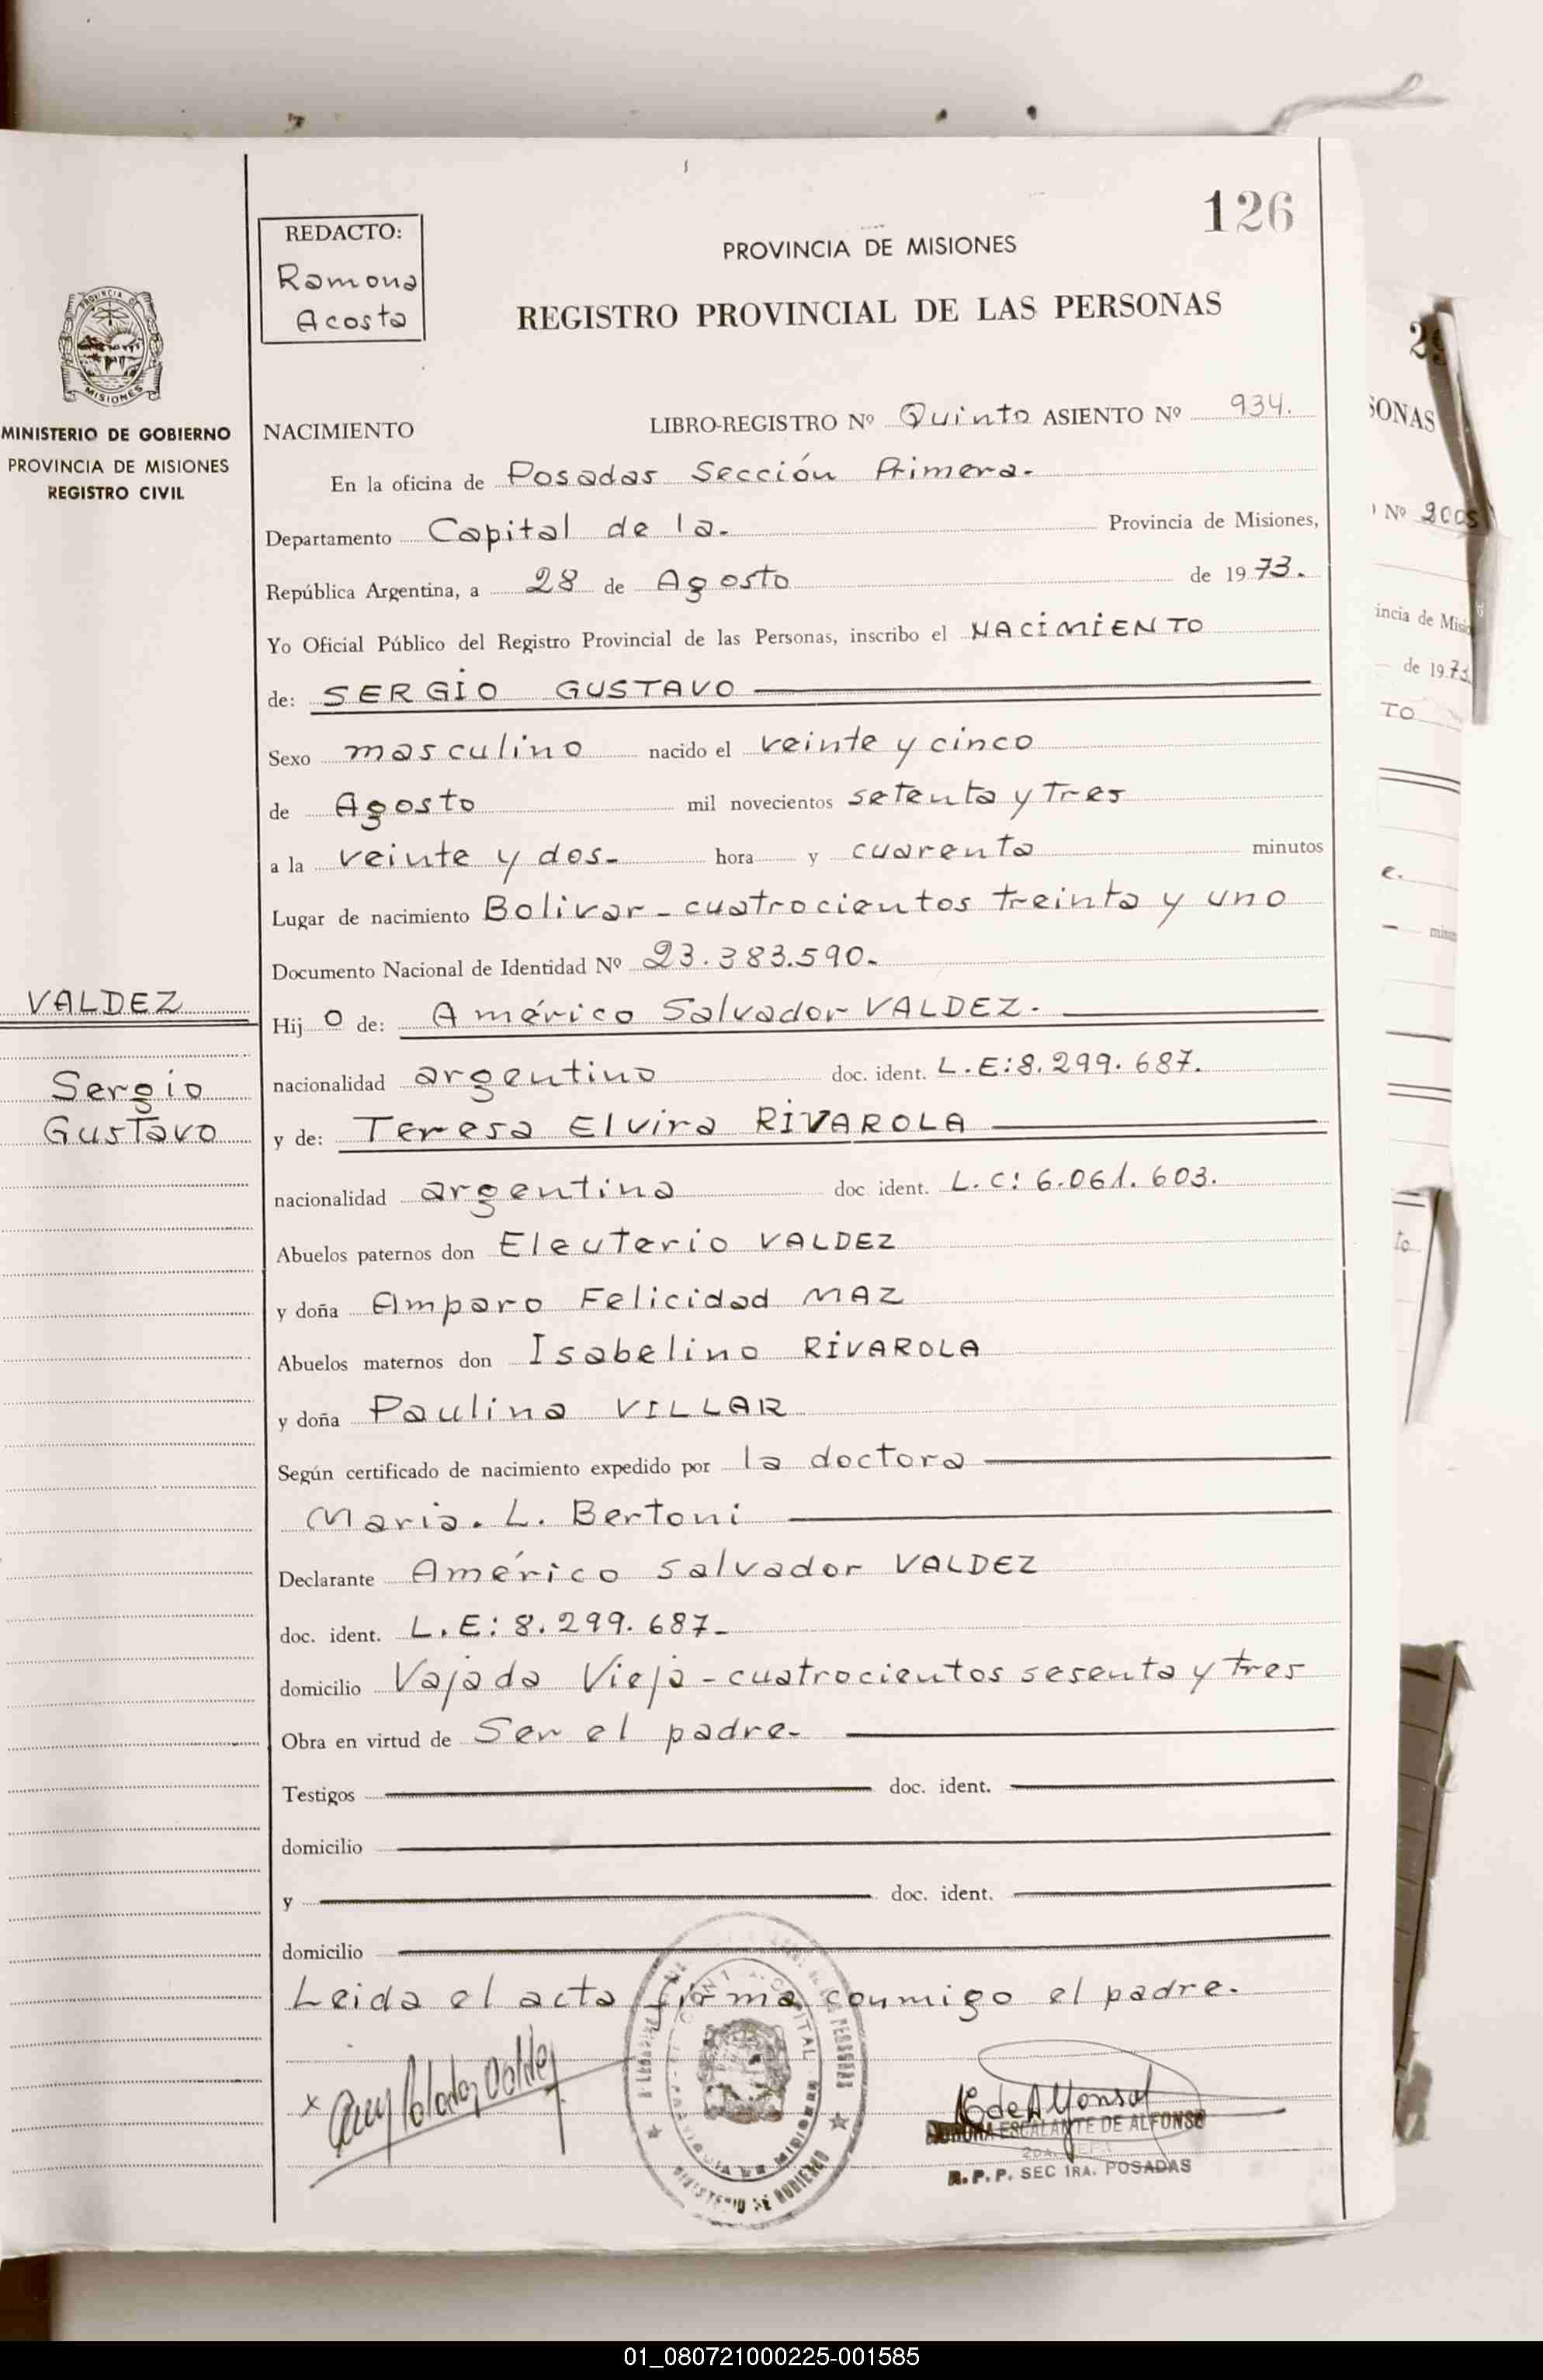 126
REDACTO:
Ramona
Acosta
PROVINCIA DE MISIONES
REGISTRO PROVINCIAL DE LAS PERSONAS
MISIONES
MINISTERIO DE GOBIERNO
PROVINCIA DE MISIONES
REGISTRO CIVIL
NACIMIENTO LIBRO-REGISTRO Nº Quinto ASIENTO Nº 934.
En la oficina de Posadas Sección Primera.
Departamento Capital de la. Provincia de Misiones,
República Argentina, a 28 de Agosto de 1973.
Yo Oficial Público del Registro Provincial de las Personas, inscribo el NACIMIENTO
de: SERGIO GUSTAVO
Sexo masculino nacido el veinte y cinco
de Agosto mil novecientos setenta y tres
a la veinte y dos- hora y cuarenta minutos
Lugar de nacimiento Bolivar - cuatrocientos treinta y uno
Documento Nacional de Identidad Nº 23.383.590-
VALDEZ
Sergio
Gustavo
Hij o de: Américo Salvador VALDEZ.
nacionalidad argentino doc. ident. L.E:8.299.687.
y de: Teresa Elvira RIVAROLA
nacionalidad argentina doc ident. L.C: 6.061.603.
Abuelos paternos don Eleuterio VALDEZ
y doña Amparo Felicidad MAZ
Abuelos maternos don Isabelino RIVAROLA
y doña Paulina VILLAR
Según certificado de nacimiento expedido por la doctora
Maria. L. Bertoni
Declarante Américo Salvador VALDEZ
doc. ident. L.E: 8.299.687-
domicilio Vajada Vieja - cuatrocientos sesenta y tres
Obra en virtud de Ser el padre-
Testigos doc. ident.
domicilio
y doc. ident.
domicilio
Leida el acta firma conmigo el padre.
ESCALANTE DE ALFONSO
R.P.P. SEC 1RA. POSADAS
MINISTERIO DE GOBIERNO
SONAS
Nº 2005
incia de Misio
de 1973
TO
01_080721000225-001585